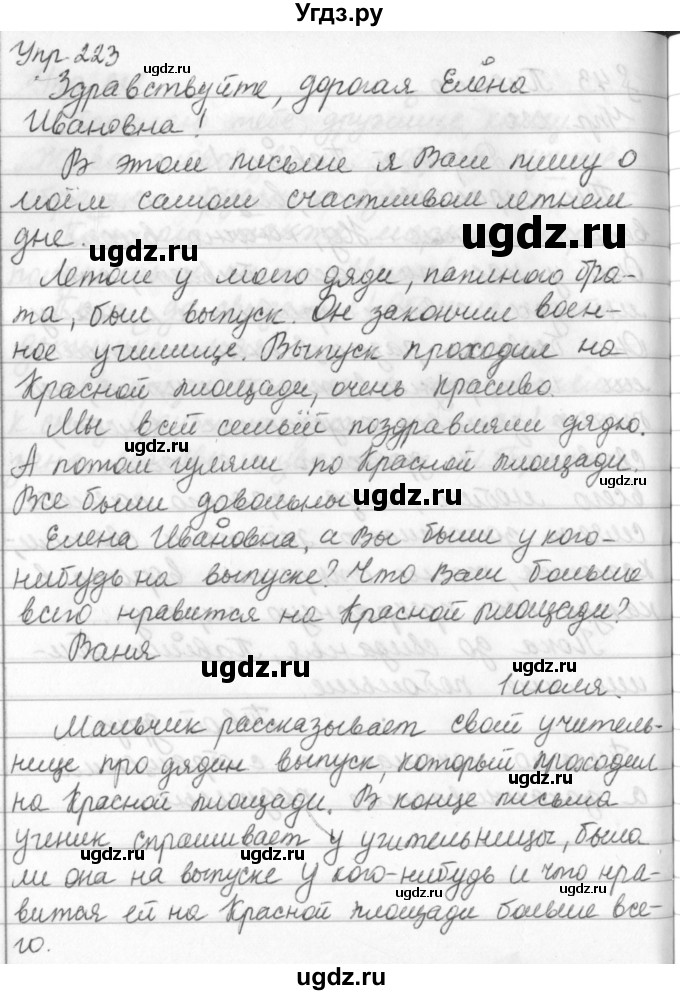 Угдз.ру
Упр 223
Здравствуйте, дорогая Елена
Ивановна!
В этом письме я Вам пишу о
моём самом счастливом летнем
дне.
ugdz.ru ugdz.ru
Летом у моего дяди, папиного бра-
та, был выпуск. Он закончил воен-
ное училище. Выпуск проходил на
Красной площади, очень красиво.
Мы всей семьёй поздравляли дядю.
ugdz.ru
А потом гуляли по Красной площади.
ugdz.ru
Все были довольны.
ugdz.ru
Елена Ивановна, а Вы были у кого-
нибудь на выпуске? Что Вам, больше
всего нравится на Красной площади?
Ваня
ugdz.ru ugdz.ru
1 июля.
Мальчик рассказывает свой учитель-
нице про дядин выпуск, который проходил
ugdz.ru
на Красной площади. В конце письма
ученик спрашивает у учительницы, была
ugdz.ru ugdz.ru
ли она на выпуске у кого-нибудь и что нра-
ugdz.ru
вится ей на Красной площади больше все-
го.
ugdz.ru